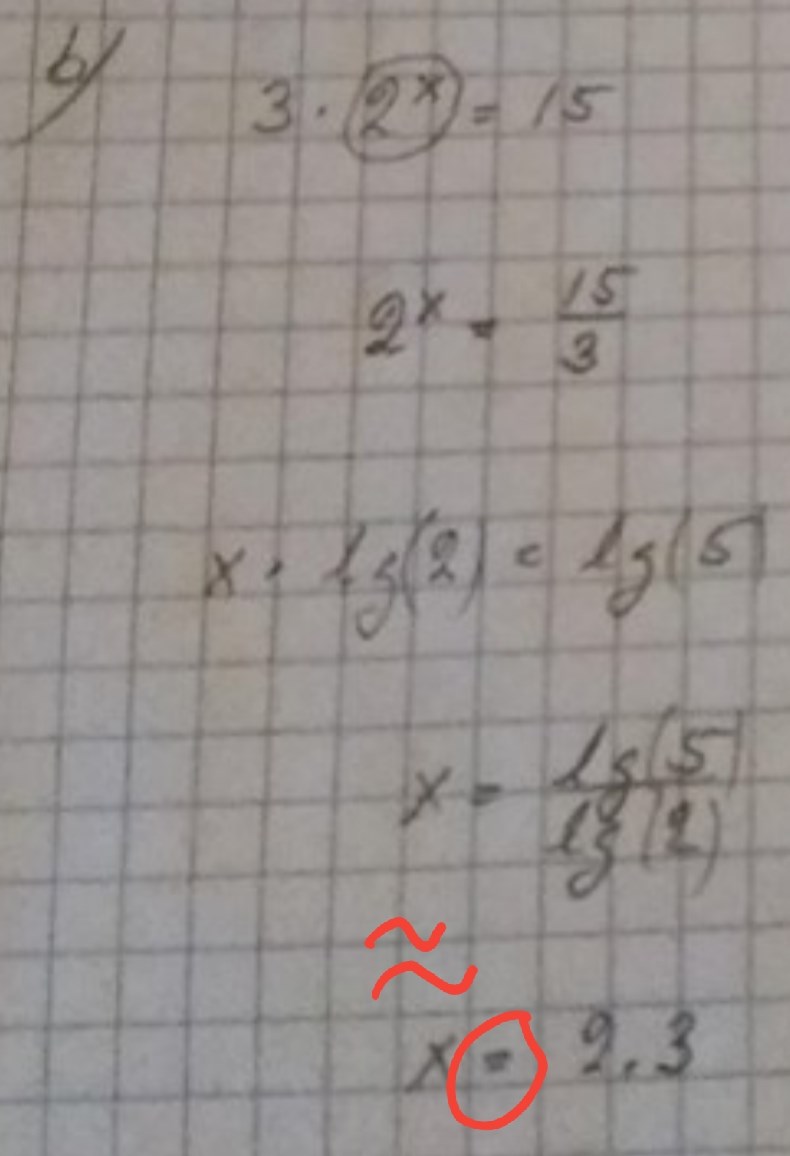 b)
3 · 2^x = 15
2^x = 15/3
x · lg(2) = lg(5)
x = lg(5)/lg(2)
≈
x = 2.3